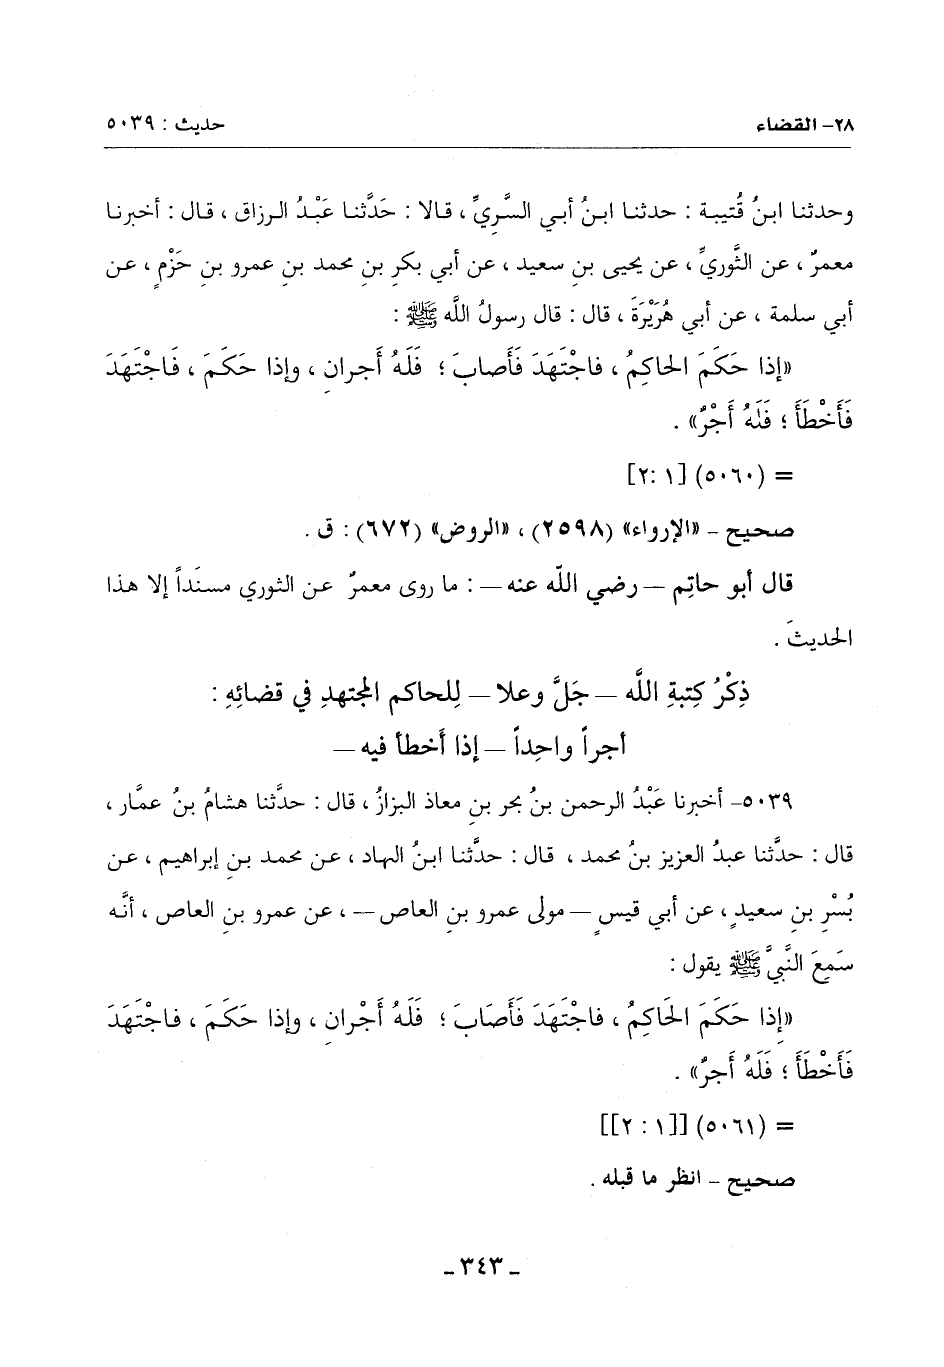 ٢٨- القضاء حديث : ٥٠٣٩
وحدثنا ابنُ قُتيبة : حدثنا ابنُ أبي السَّريِّ ، قالا : حَدَّثنا عَبْدُ الرزاق ، قال : أخبرنا
معمرٌ ، عن الثَّوريِّ ، عن يحيى بنِ سعيد ، عن أبي بكرِ بنِ محمد بنِ عمرو بنِ حَزْمٍ ، عن
أبي سلمة ، عن أبي هُرَيْرَةَ ، قال : قال رسولُ اللَّه ﷺ :
«إذا حَكَمَ الحاكِمُ ، فاجْتَهَدَ فَأَصابَ ؛ فَلَهُ أَجرانِ ، وإذا حَكَمَ ، فَاجْتَهَدَ
فَأَخْطَأَ ؛ فَلَهُ أَجْرٌ» .
= (٥٠٦٠) [١ :٢]
صحيح - «الإرواء» (٢٥٩٨) ، «الروض» (٦٧٢) : ق .
قال أبو حاتِم – رضي اللَّه عنه – : ما روى معمرٌ عن الثوري مسنَداً إلا هذا
الحديثَ .
ذِكْرُ كِتبةِ اللَّه – جَلَّ وعلا – لِلحاكم المجتهدِ في قضائِهِ :
أجراً واحِداً – إذا أَخطأ فيه –
٥٠٣٩- أخبرنا عَبْدُ الرحمن بنُ بحرِ بنِ معاذ البزازُ ، قال : حدَّثنا هشامُ بنُ عمَّار ،
قال : حدَّثنا عبدُ العزيز بنُ محمد ، قال : حدَّثنا ابنُ الهاد ، عن محمد بنِ إبراهيم ، عن
بُسْرِ بنِ سعيدٍ ، عن أبي قيسٍ – مولى عمرو بنِ العاص – ، عن عمرو بنِ العاص ، أنَّه
سَمِعَ النَّبيَّ ﷺ يقول :
«إذا حَكَمَ الحَاكِمُ ، فاجْتَهَدَ فَأَصَابَ ؛ فَلَهُ أَجْرانِ ، وإذا حَكَمَ ، فاجْتَهَدَ
فَأَخْطَأَ ؛ فَلَهُ أَجرٌ» .
= (٥٠٦١) [[١ : ٢]]
صحيح - انظر ما قبله .
- ٣٤٣ -